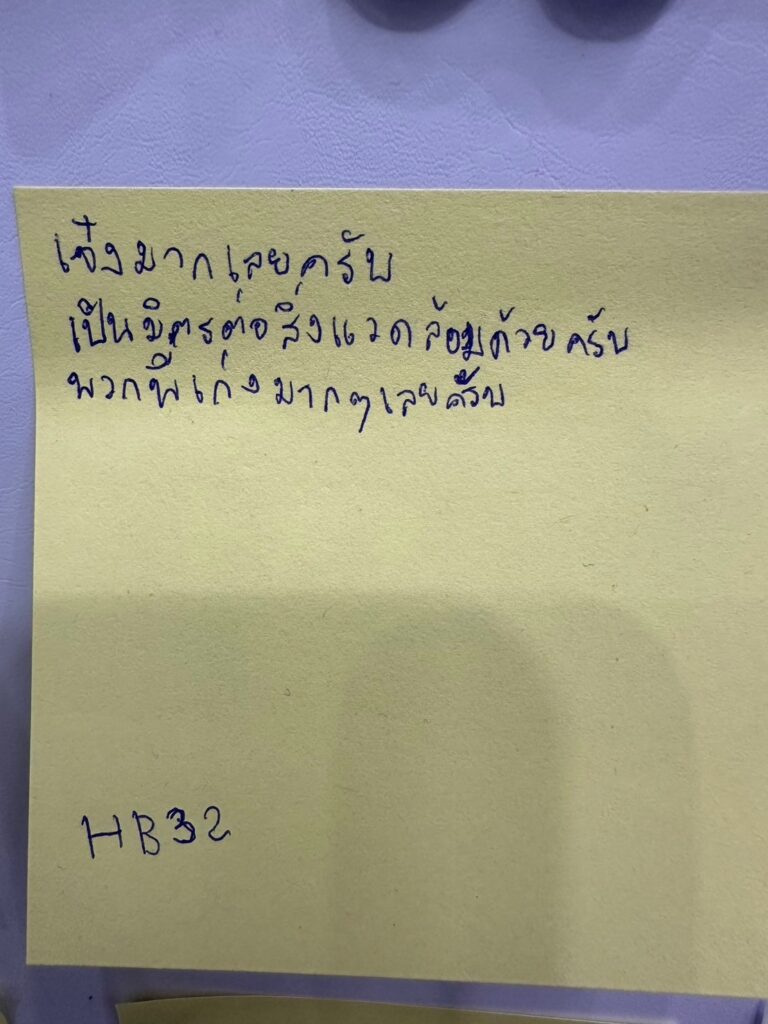 เจ๋งมากเลยครับ
เป็นมิตรต่อสิ่งแวดล้อมด้วยครับ
พวกพี่เก่งมากๆเลยครับ
HB32